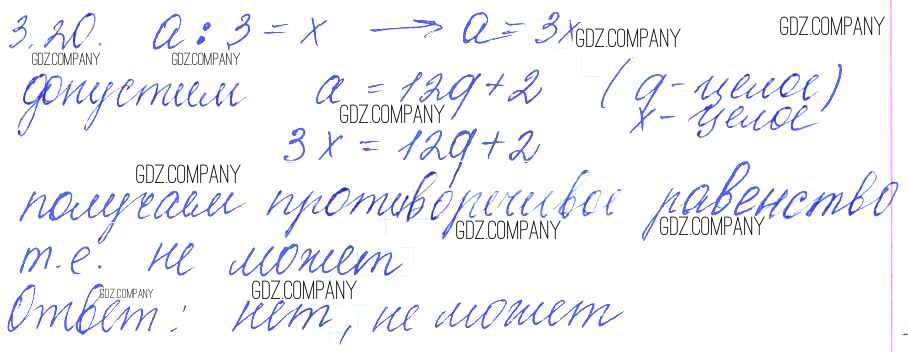 3.20. a : 3 = x → a = 3x GDZ.COMPANY GDZ.COMPANY
GDZ.COMPANY GDZ.COMPANY
допустим a = 12q + 2 (q - целое)
GDZ.COMPANY x - целое
3x = 12q + 2
GDZ.COMPANY
получаем противоречивое равенство
GDZ.COMPANY GDZ.COMPANY
т.е. не может
GDZ.COMPANY GDZ.COMPANY
Ответ: нет, не может